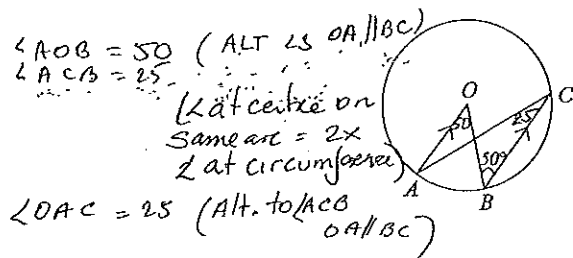 ∠AOB = 50 (ALT ∠S OA//BC)
∠ACB = 25
(∠at centre on
Same arc = 2x
∠ at circumference)
∠OAC = 25 (Alt. to ∠ACB
OA//BC)
O
50
25
C
50°
A
B